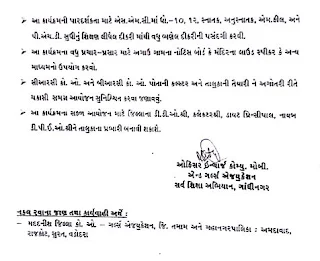 ➢ આ કાર્યક્રમની પારદર્શકતા માટે એસ.એમ.સી.માં ધો.-10, ૧૨, સ્નાતક, અનુસ્નાતક, એમ.ફીલ, અને
પી.એચ.ડી. સુધીનું શિક્ષણ લીધેલ દીકરી માંથી વધુ ભણેલ દીકરીની પસંદગી કરવી.
➢ આ કાર્યક્રમના વધુ પ્રચાર-પ્રસાર માટે અગાઉ ગામના નોટિસ બોર્ડ કે મંદિરના લાઉડ સ્પીકર કે અન્ય
માધ્યમનો ઉપયોગ કરવો.
➢ સીઆરસી કો. ઓ. અને બીઆરસી કો. ઓ. પોતાની કલ્સ્ટર અને તાલુકાની તૈયારી ને અગોતરી રીતે
ચકાસી સમગ્ર આયોજન સુનિશ્ચિત કરવા જણાવવું.
➢ આ કાર્યક્રમના સફળ આયોજન માટે જિલ્લાના ડી.ડી.ઓ.શ્રી, કલેક્ટરશ્રી, ડાયટ પ્રિન્સીપાલ, નાયબ
ડી.પી.ઈ.ઓ.શ્રીને તાલુકાના પ્રભારી બનાવી શકાશે.
ઓફિસર ઈન્ચાર્જ કોમ્યુ. મોબી.
એન્ડ ગર્લ્સ એજ્યુકેશન
સર્વ શિક્ષા અભિયાન, ગાંધીનગર
નકલ રવાના જાણ તથા કાર્યવાહી અર્થે :
- મદદનીશ જિલ્લા કો. ઓ. - ગર્લ્સ એજ્યુકેશન, જિ. તમામ અને મહાનગરપાલિકા : અમદાવાદ,
રાજકોટ, સુરત, વડોદરા